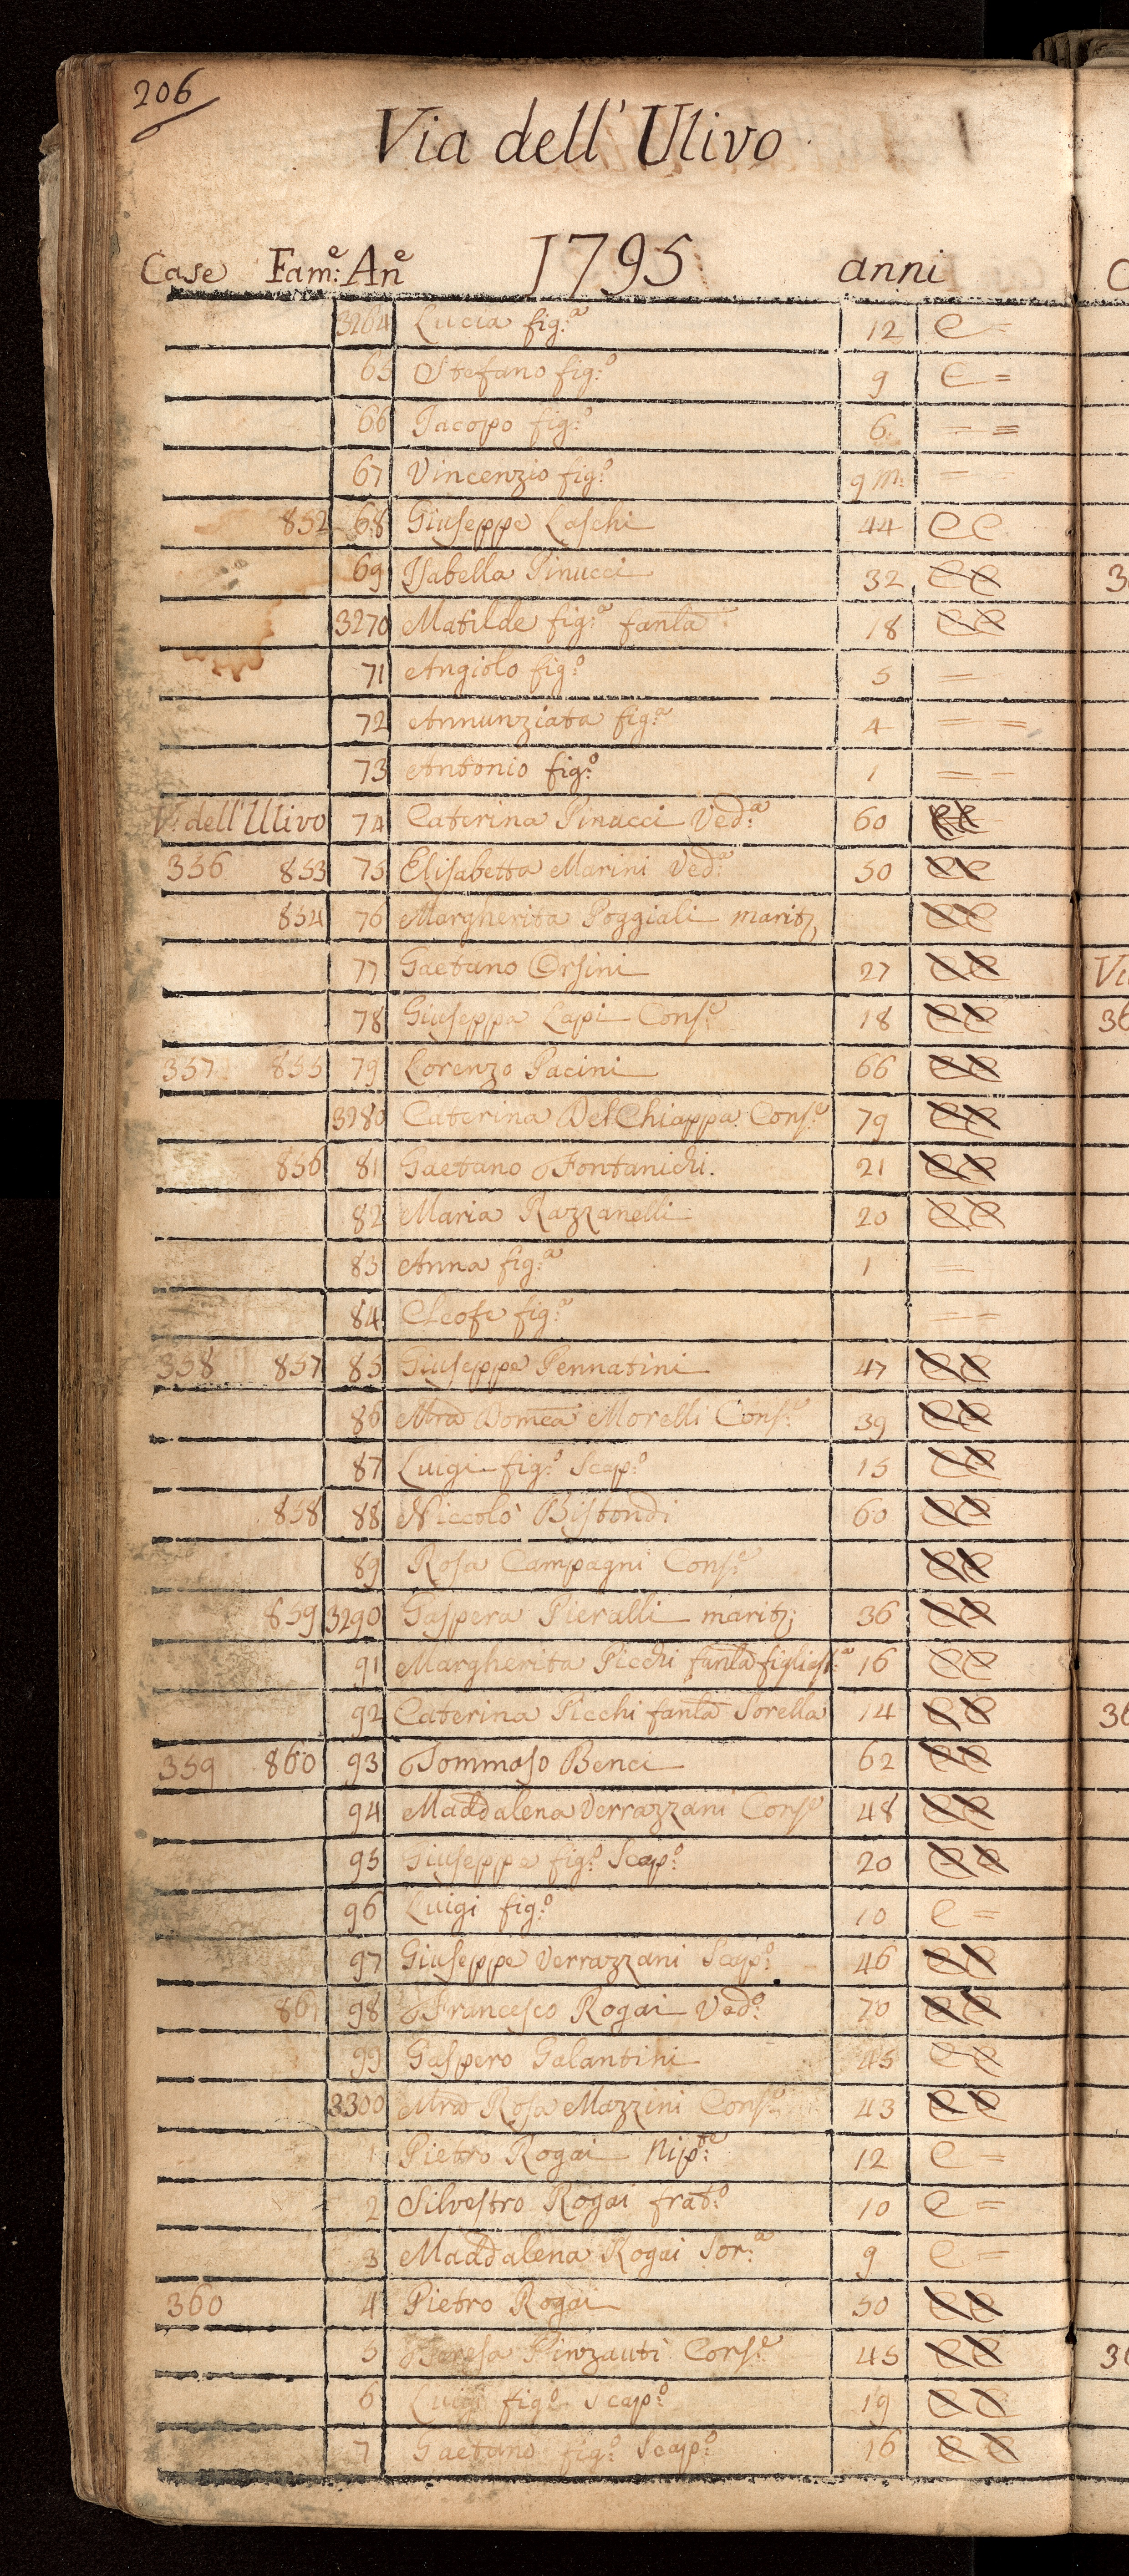 206
Via dell' Ulivo
1795
Case Fam:e An:e anni
3264 Lucia fig:a 12 e =
65 Stefano fig:o 9 e =
66 Jacopo fig:o 6 = =
67 Vincenzio fig:o 9 m: =
852 68 Giuseppe Laschi 44 e e
69 Isabella Pinucci 32 e e
3270 Matilde fig:a fanla 18 e e
71 Angiolo fig:o 5 =
72 Annunziata fig:a 4 = =
73 Antonio fig:o 1 = =
V: dell'Ulivo 74 Caterina Pinucci Ved:a 60 e e
356 853 75 Elisabetta Marini Ved:a 50 e e
854 76 Margherita Poggiali marit: e e
77 Gaetano Orsini 27 e e
78 Giuseppa Lapi Cons:e 18 e e
357 855 79 Lorenzo Pacini 66 e e
3280 Caterina Del Chiappa Cons:e 79 e e
856 81 Gaetano Fontanichi. 21 e e
82 Maria Razzanelli 20 e e
83 Anna fig:a 1 =
84 Cleofe fig:a = =
358 857 85 Giuseppe Pennatini 47 e e
86 Mra Domca Morelli Cons:e 39 e e
87 Luigi fig:o Scap:o 15 e e
858 88 Niccolò Bistondi 60 e e
89 Rosa Campagni Cons:e e e
859 3290 Gaspera Pieralli marit: 36 e e
91 Margherita Picchi fanla figliast:a 16 e e
92 Caterina Picchi fanla Sorella 14 e e
359 860 93 Tommaso Benci 62 e e
94 Maddalena Verrazzani Cons:e 48 e e
95 Giuseppe fig:o Scap:o 20 e e
96 Luigi fig:o 10 e =
97 Giuseppe Verrazzani Scap:o 46 e e
861 98 Francesco Rogai Ved:o 70 e e
99 Gaspero Galantini 45 e e
3300 Mra Rosa Mazzini Cons:e 43 e e
1 Pietro Rogai Nip:te 12 e =
2 Silvestro Rogai frat:o 10 e =
3 Maddalena Rogai Sor:a 9 e =
360 4 Pietro Rogai 50 e e
5 Teresa Pinzauti Cons:e 45 e e
6 Luigi fig:o Scap:o 19 e e
7 Gaetano fig:o Scap:o 16 e e